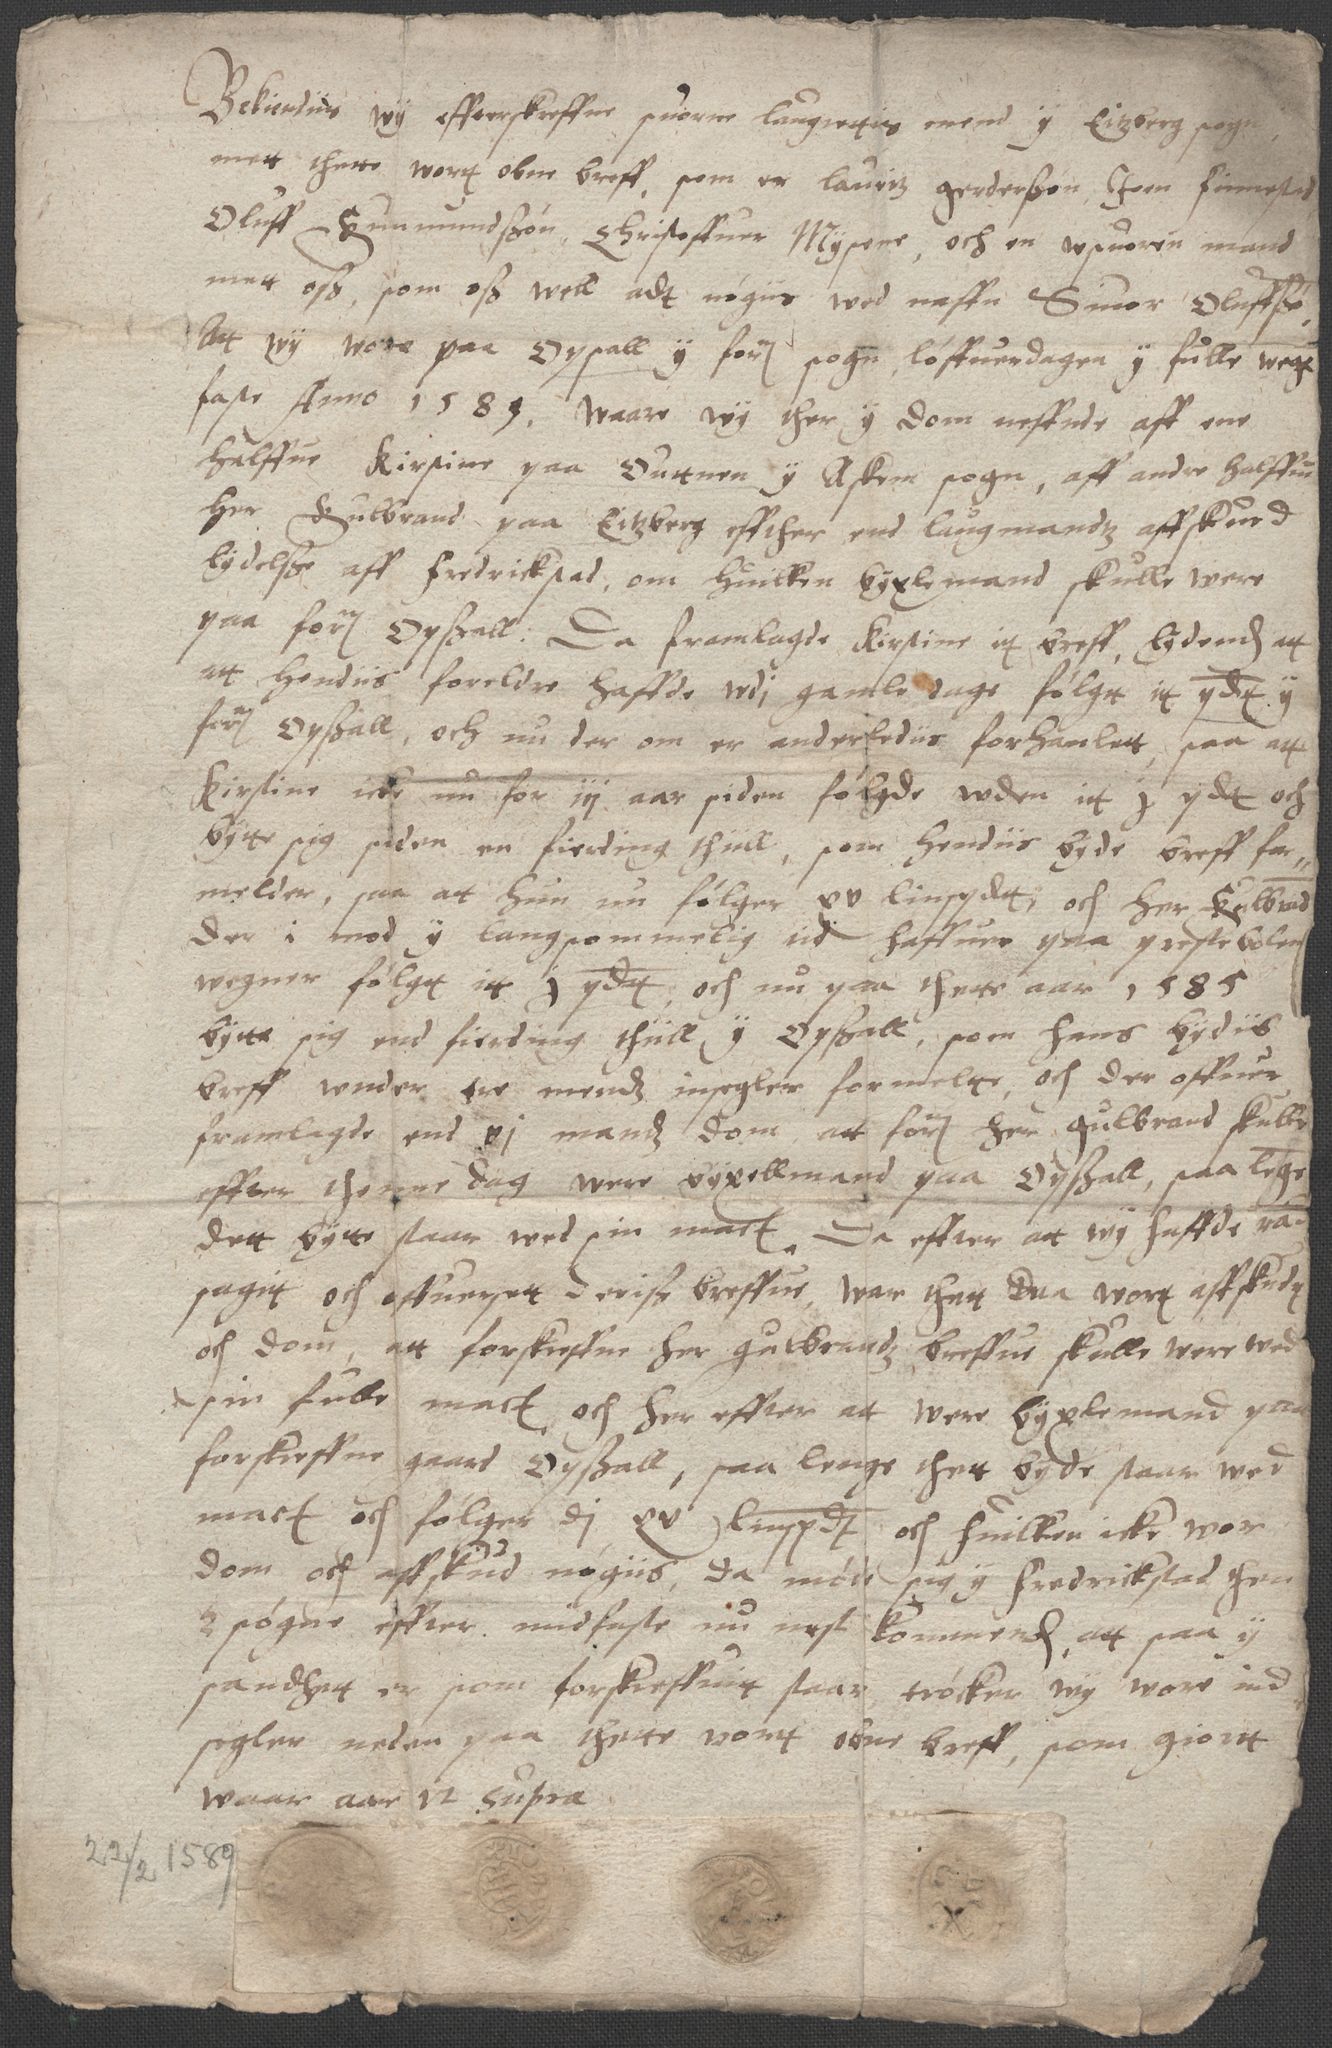 Bekiendiis wÿ effterskreffne suorne laugrettis mend ÿ Eitzberg sogn,
mett thette wort obne breff, som er lauritz gerdersßøn, Joen finnestad,
Oluff Gunmundsßøn, Christoffuer Mÿsene, och en wsuoren mand
mett osß, som osß well adt nøgiis wed naffn Siuor Oluffsßø,
Att wÿ wore paa Opsall ÿ forᵉ sogn, løffuerdagen ÿ fulle wegᵉ
faste Anno 1589, waare wÿ ther ÿ dom neffnde aff ene
halffue Kirstine paa Outnen ÿ Askem sogn, aff andre halffue
Her Gulbrand paa Eitzberg effther end laugmandtz affskued
lÿdelsße aff Fredrickstad, om huilken bÿxlemand skulle were
paa forᵉ Opsßall. Da framlagde Kirstine it breff, lÿdendᵉ att
att hendiis foreldre haffde wdj gamle dage følgt it pdt ÿ
forᵉ Opsßall, och nu der om er anderlediis forhanlett, saa att
Kirstine icke nu for iij aar siden følgde wden it j pdt och
bÿtte sig siden en fierding thiill, som hendiis bÿde breff for„
melder, saa at hun nu følger xv linspdt, och her Gulbrand
der i mod ÿ langsommelig tid haffuer paa prestebolens
wegner følgt it j pdt, och nu paa thette aar 1585
bÿtte sig end fierding thiill ÿ Opsßall, som hans bÿdiis
breff wnder tre mendz insegler formelte, och der offuer
framlagde end vj mandz dom att forᵉ her gulbrand skulle
effter thenne dag were bÿxellmand paa Opsßall, saa lenge
dett bÿtte staar wed sin mact. Da effter att wÿ haffde ran-
sagit och offuerset deriis breffue, war thett daa wort affskudt
och dom, att forskreffne her gulbrandtz breffue skulle were wed
sin fulle mact, och her effter at were bÿxlemand paa
forskreffne gaard Opsßall, saa lenge thett bÿde staar wed
mact och følger dj xv linspdt och huilken icke wor
dom och affskud nøgiis, da møde sig ÿ Fredrickstad then
2 søgne effter midfaste nu nest kommendᵉ, att saa ÿ
sandhet er som forskreffuit staar trøcker wÿ wore ind
segler neden paa thette wort obne breff, som giortt
waar aar vt supra
22/2 1589